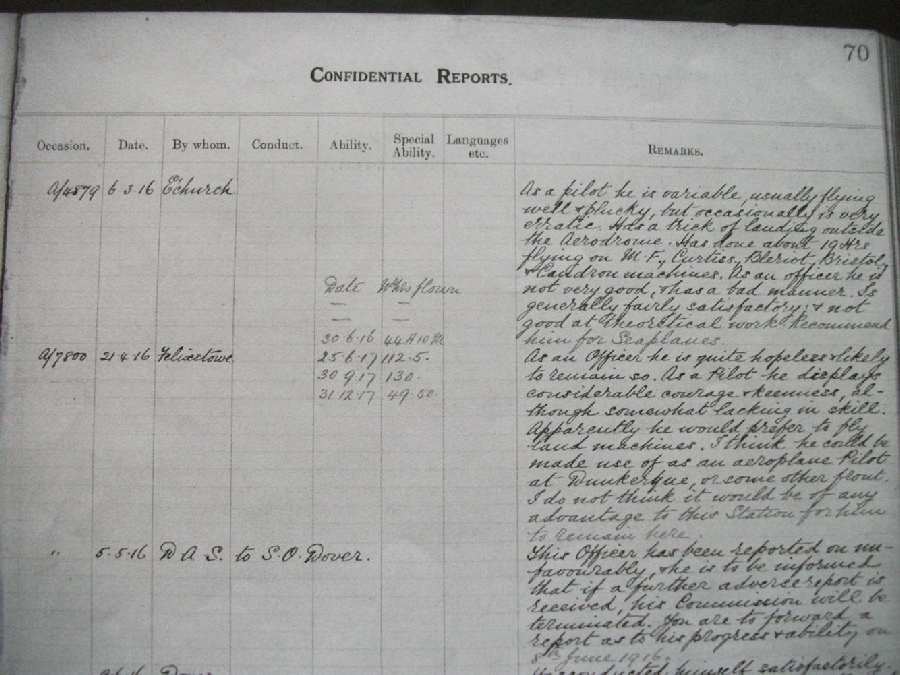 70
CONFIDENTIAL REPORTS.
Occasion. Date. By whom. Conduct. Ability. Special Ability. Languages etc. REMARKS.
A/4879 6 3 16 Echurch
As a pilot he is variable, usually flying
well & plucky, but occasionally is very
erratic. Has a trick of landing outside
the Aerodrome. Has done about 19 Hrs
flying on M.F., Curtiss, Bleriot, Bristol,
& Caudron machines. As an officer he is
not very good, & has a bad manner. Is
generally fairly satisfactory; & not
good at theoretical work. Recommend
him for Seaplanes.
Date flown
30 6 16 44 H 10 M
25.6.17 112.5.
30 9.17 130.
31 12.17 49.50.
A/7800 21.4.16 Felixstowe
As an Officer he is quite hopeless & likely
to remain so. As a Pilot he displays
considerable courage & keenness, al-
though somewhat lacking in skill.
Apparently he would prefer to fly
land machines. I think he could be
made use of as an aeroplane Pilot
at Dunkerque, or some other front.
I do not think it would be of any
advantage to this Station for him
to remain here.
" 5.5.16 D A S. to S.O. Dover.
This Officer has been reported on un-
favourably, & he is to be informed
that if a further adverce report is
received, his Commission will be
terminated. You are to forward a
report as to his progress & ability on
8th June 1916.
conducted himself satisfactorily.